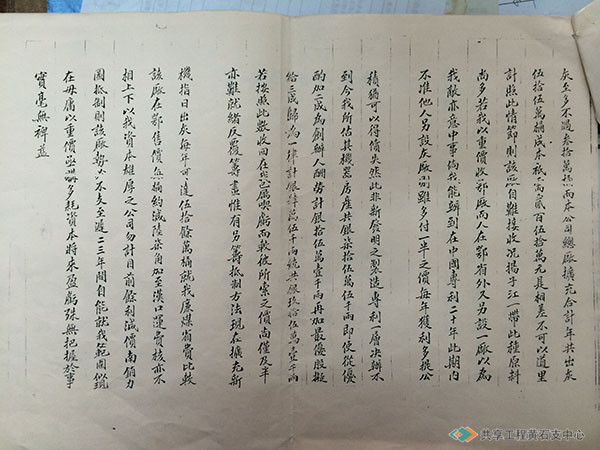 灰至多不過叁拾萬桶而本公司總廠擴充合計年共出灰
伍拾伍萬桶成本祇需貳百伍拾萬元是相差不可以道里
計照此情節則該廠自難接收況揚子江一帶此種原料
尚多若我以重價收鄂廠而人在鄂省外又另設一廠以為
我敵亦意中事倘我能辦到在中國專利二十年此期內
不准他人另設灰廠則雖多付一半之價每年獲利多提公
積猶可以得償失然此非新發明之製造專利一層決辦不
到今我所估其機器房產共銀柒拾伍萬伍千兩即使從優
酌加二成為創辦人酬勞計銀拾伍萬壹千兩再加最優股擬
給三成歸為一律計銀 萬伍千兩統共銀玖拾伍萬壹千兩
若按照此數收回在我已屬喫虧而較彼所索之價尚僅及半
亦難就緒反覆籌畫惟有另籌抵制方法現在擴充新
機指日出灰每年可達伍拾餘萬桶就我廉煤省費比較
該廠在鄂售價每桶約減陸柒角加至漢口運費核亦不
相上下以我資本雄厚之公司勿計目前餘利減價商銷力
圖抵制則該廠勢必不支至遲二三年間自能就我範圍似現
在毋庸以重價 多耗資本將來盈虧殊無把握於事
實毫無裨益
共享工程黄石支中心